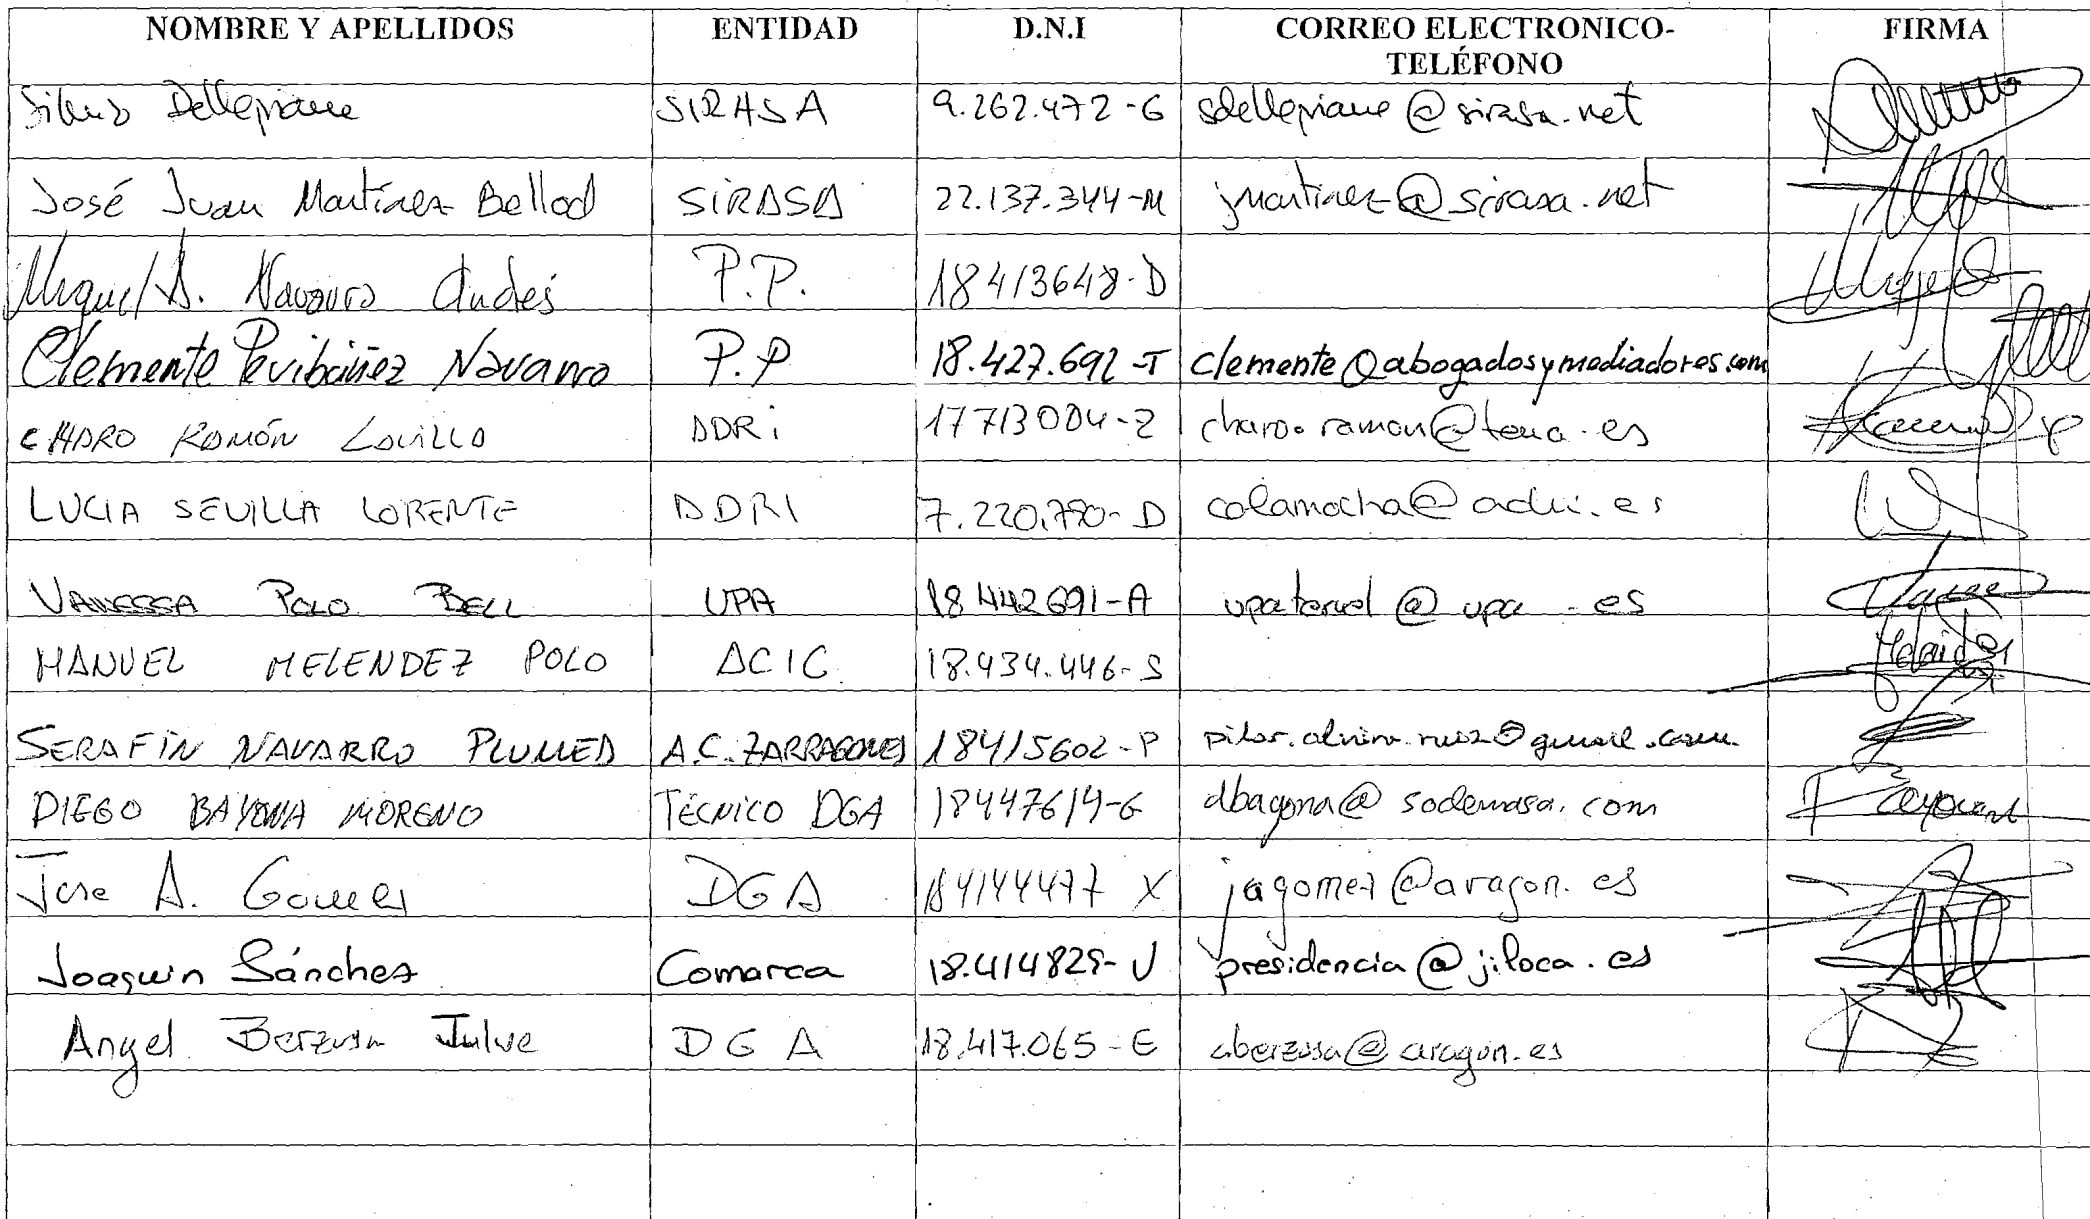 NOMBRE Y APELLIDOS ENTIDAD D.N.I CORREO ELECTRONICO-
TELÉFONO FIRMA
Dellepiane SIRASA 9.262.472-G sdellepiane@sirasa.net
José Juan Martínez Bellod SIRASA 22.137.344-M jmartinez@sirasa.net
Miguel A. Navarro Andés P.P. 18413648-D
Clemente Peribáñez Navarro P.P 18.427.692-T clemente@abogadosymediadores.com
CHARO RAMÓN ADRI 17713004-Z
LUCIA SEVILLA LORENTE ADRI 7.220.790-D
VANESSA POLO BELL UPA 18442691-A upateruel@upa.es
MANUEL MELENDEZ POLO ACIC 18.434.446-S
SERAFÍN NAVARRO PLUMED A.C. 18415602-P
DIEGO BAYONA MORENO TÉCNICO DGA 18447614-G dbayona@sodemasa.com
Jose A. Gomez DGA 18414447 X jagomez@aragon.es
Joaquin Sánchez Comarca 18.414825-V presidencia@jiloca.es
Angel Berzosa Julve DGA 18.417.065-E aberzosa@aragon.es